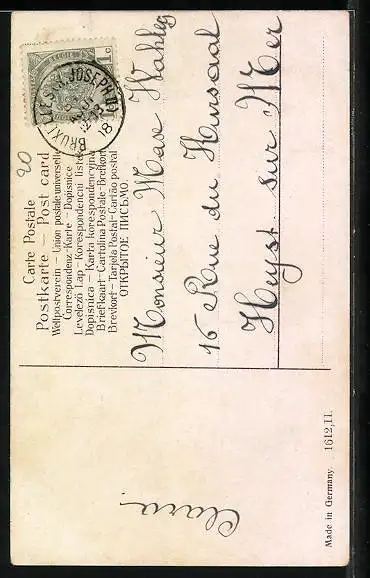 Carte Postale
Postkarte – Post card
Weltpostverein – Union postale universelle
Correspondenz-Karte – Dopisnice
Levelező Lap – Korespondencni listek
Dopisnica – Karta korespondencyjna
Briefkaart – Cartolina Postale – Brefkort
Brevkort – Tarjeta Postal – Cartão postal
ОТКРЫТОЕ ПИСЬМО.
1c
1c
BRUXELLES (R. JOSEPH II)
18
20
Monsieur Max
16 Rue du Kursaal
Heyst sur Mer
Clara
Made in Germany 1612, II.